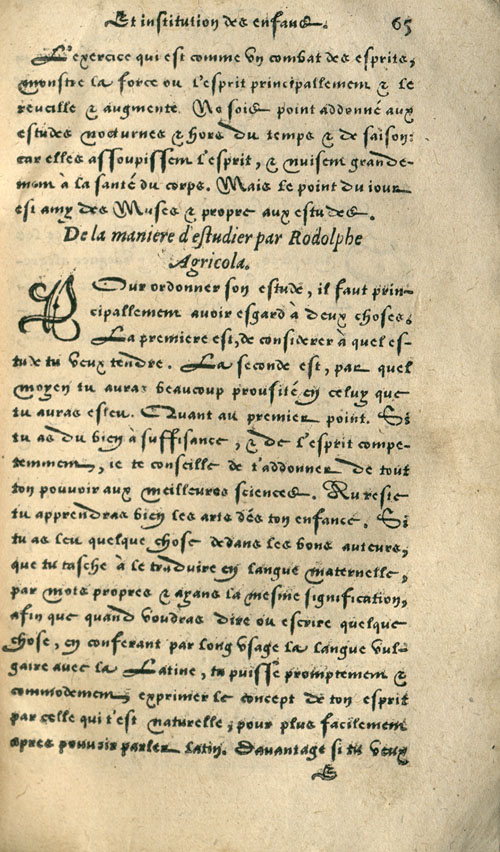 Et institution des enfans. 65
L'exercice qui est comme vn combat des esprits,
monstre la force ou l'esprit principallement & le
reueille & augmente. Ne sois point addonné aux
estudes nocturnes & hors du temps & de saison:
car elles assoupissent l'esprit, & nuisent grande-
ment à la santé du corps. Mais le point du iour
est amy des Muses & propre aux estudes.
De la maniere d'estudier par Rodolphe
Agricola.
POur ordonner son estude, il faut prin-
cipallement auoir esgard à deux choses.
La premiere est, de considerer à quel es-
tude tu veux tendre. La seconde est, par quel
moyen tu auras beaucoup prousité en celuy que
tu auras esleu. Quant au premier point. Si
tu as du bien à suffisance, & de l'esprit compe-
temment, ie te conseille de t'addonner de tout
ton pouuoir aux meilleures sciences. Au reste
tu apprendras bien les arts dés ton enfance. Si
tu as leu quelque chose dedans les bons auteurs,
que tu tasche à le traduire en langue maternelle,
par mots propres & ayans la mesme signification,
afin que quand voudras dire ou escrire quelque
chose, en conferant par long vsage la langue vul-
gaire auec la Latine, tu puisse promptement &
commodement, exprimer le concept de ton esprit
par celle qui t'est naturelle, pour plus facilement
apres pouuoir parler latin. Dauantage si tu veux
E